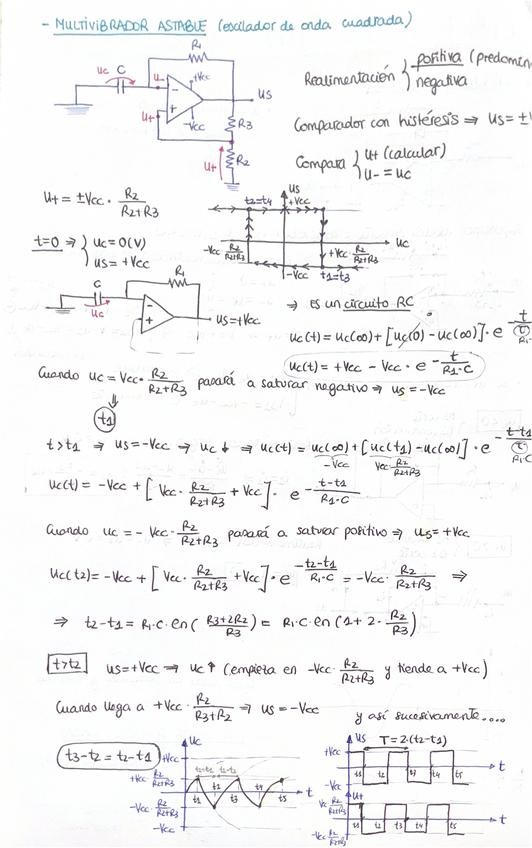 - MULTIVIBRADOR ASTABLE (oscilador de onda cuadrada)
R1
uc C
u-
+Vcc
us
Realimentación { positiva (predomin
negativa
u+
-Vcc
R3
Comparador con histéresis ⇒ us = ±V
u+
R2
Compara { u+ (calcular)
u- = uc
u+ = ±Vcc · R2/(R2+R3)
us
t2=t4
+Vcc
uc
t=0 ⇒ { uc = 0(V)
us = +Vcc
-Vcc R2/(R2+R3)
+Vcc R2/(R2+R3)
-Vcc
t1=t3
R1
C
uc
us=+Vcc
⇒ Es un circuito RC
uc(t) = uc(∞) + [uc(0) - uc(∞)] · e^-t/τ
R1·C
uc(t) = +Vcc - Vcc · e^-t/(R1·C)
Cuando uc = Vcc · R2/(R2+R3) pasará a saturar negativo ⇒ us = -Vcc
t1
t>t1 ⇒ us = -Vcc ⇒ uc ↓ ⇒ uc(t) = uc(∞) + [uc(t1) - uc(∞)] · e^-(t-t1)/τ
-Vcc Vcc·R2/(R2+R3) R1·C
uc(t) = -Vcc + [Vcc · R2/(R2+R3) + Vcc] · e^-(t-t1)/(R1·C)
Cuando uc = - Vcc · R2/(R2+R3) pasará a saturar positivo ⇒ us = +Vcc
uc(t2) = -Vcc + [Vcc · R2/(R2+R3) + Vcc] · e^-(t2-t1)/(R1·C) = -Vcc · R2/(R2+R3) ⇒
⇒ t2-t1 = R1·C·ln((R3+2R2)/R3) = R1·C·ln(1+2·R2/R3)
t>t2 us=+Vcc ⇒ uc ↑ (empieza en -Vcc · R2/(R2+R3) y tiende a +Vcc)
Cuando llega a +Vcc · R2/(R3+R2) ⇒ us = -Vcc
y así sucesivamente....
t3-t2 = t2-t1
uc
+Vcc
+Vcc R2/(R2+R3)
t2-t1 t3-t2
t1 t2 t3 t4 t5 t
-Vcc · R2/(R2+R3)
-Vcc
us T=2·(t2-t1)
+Vcc
t1 t2 t3 t4 t5 t
-Vcc
u+
Vcc R2/(R2+R3)
t1 t2 t3 t4 t5 t
-Vcc R2/(R2+R3)